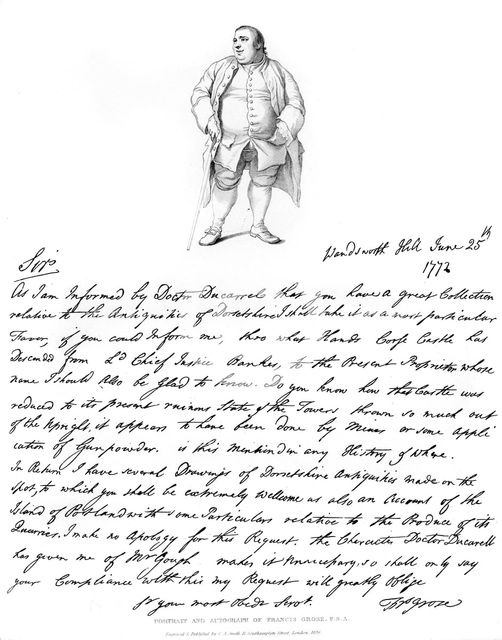 Wandsworth Hill June 25th
1772
Sir,
As I am Informed by Doctor Ducarrel that you have a great Collection
relative to the Antiquities of Dorsetshire I shall take it as a most particular
Favor, if you could Inform me, thro what Hands Corfe Castle has
Descended from Ld Chief Justice Bankes, to the Present Proprietor whose
name I should Also be glad to know. Do you know how this Castle was
reduced to its present ruinous State & the Towers thrown so much out
of the upright, it appears to have been done by Mines or some Appli
cation of Gunpowder. is this mentiond in any History & where.
In Return I have several Drawings of Dorsetshire Antiquities made on the
spot, to which you shall be extremely wellcome as also an Account of the
Island of Portland with some Particulars relative to the Produce of its
Quarries, I make no Apology for this Request. the Character Doctor Ducarell
has given me of Mr Gough makes it Unnecessary, so shall only say
your Compliance with this my Request will greatly Oblige
Sr your most Obedt Servt. Fras Grose
PORTRAIT AND AUTOGRAPH OF FRANCIS GROSE, F.S.A.
Engraved & Published by C. J. Smith, Southampton Street, London,